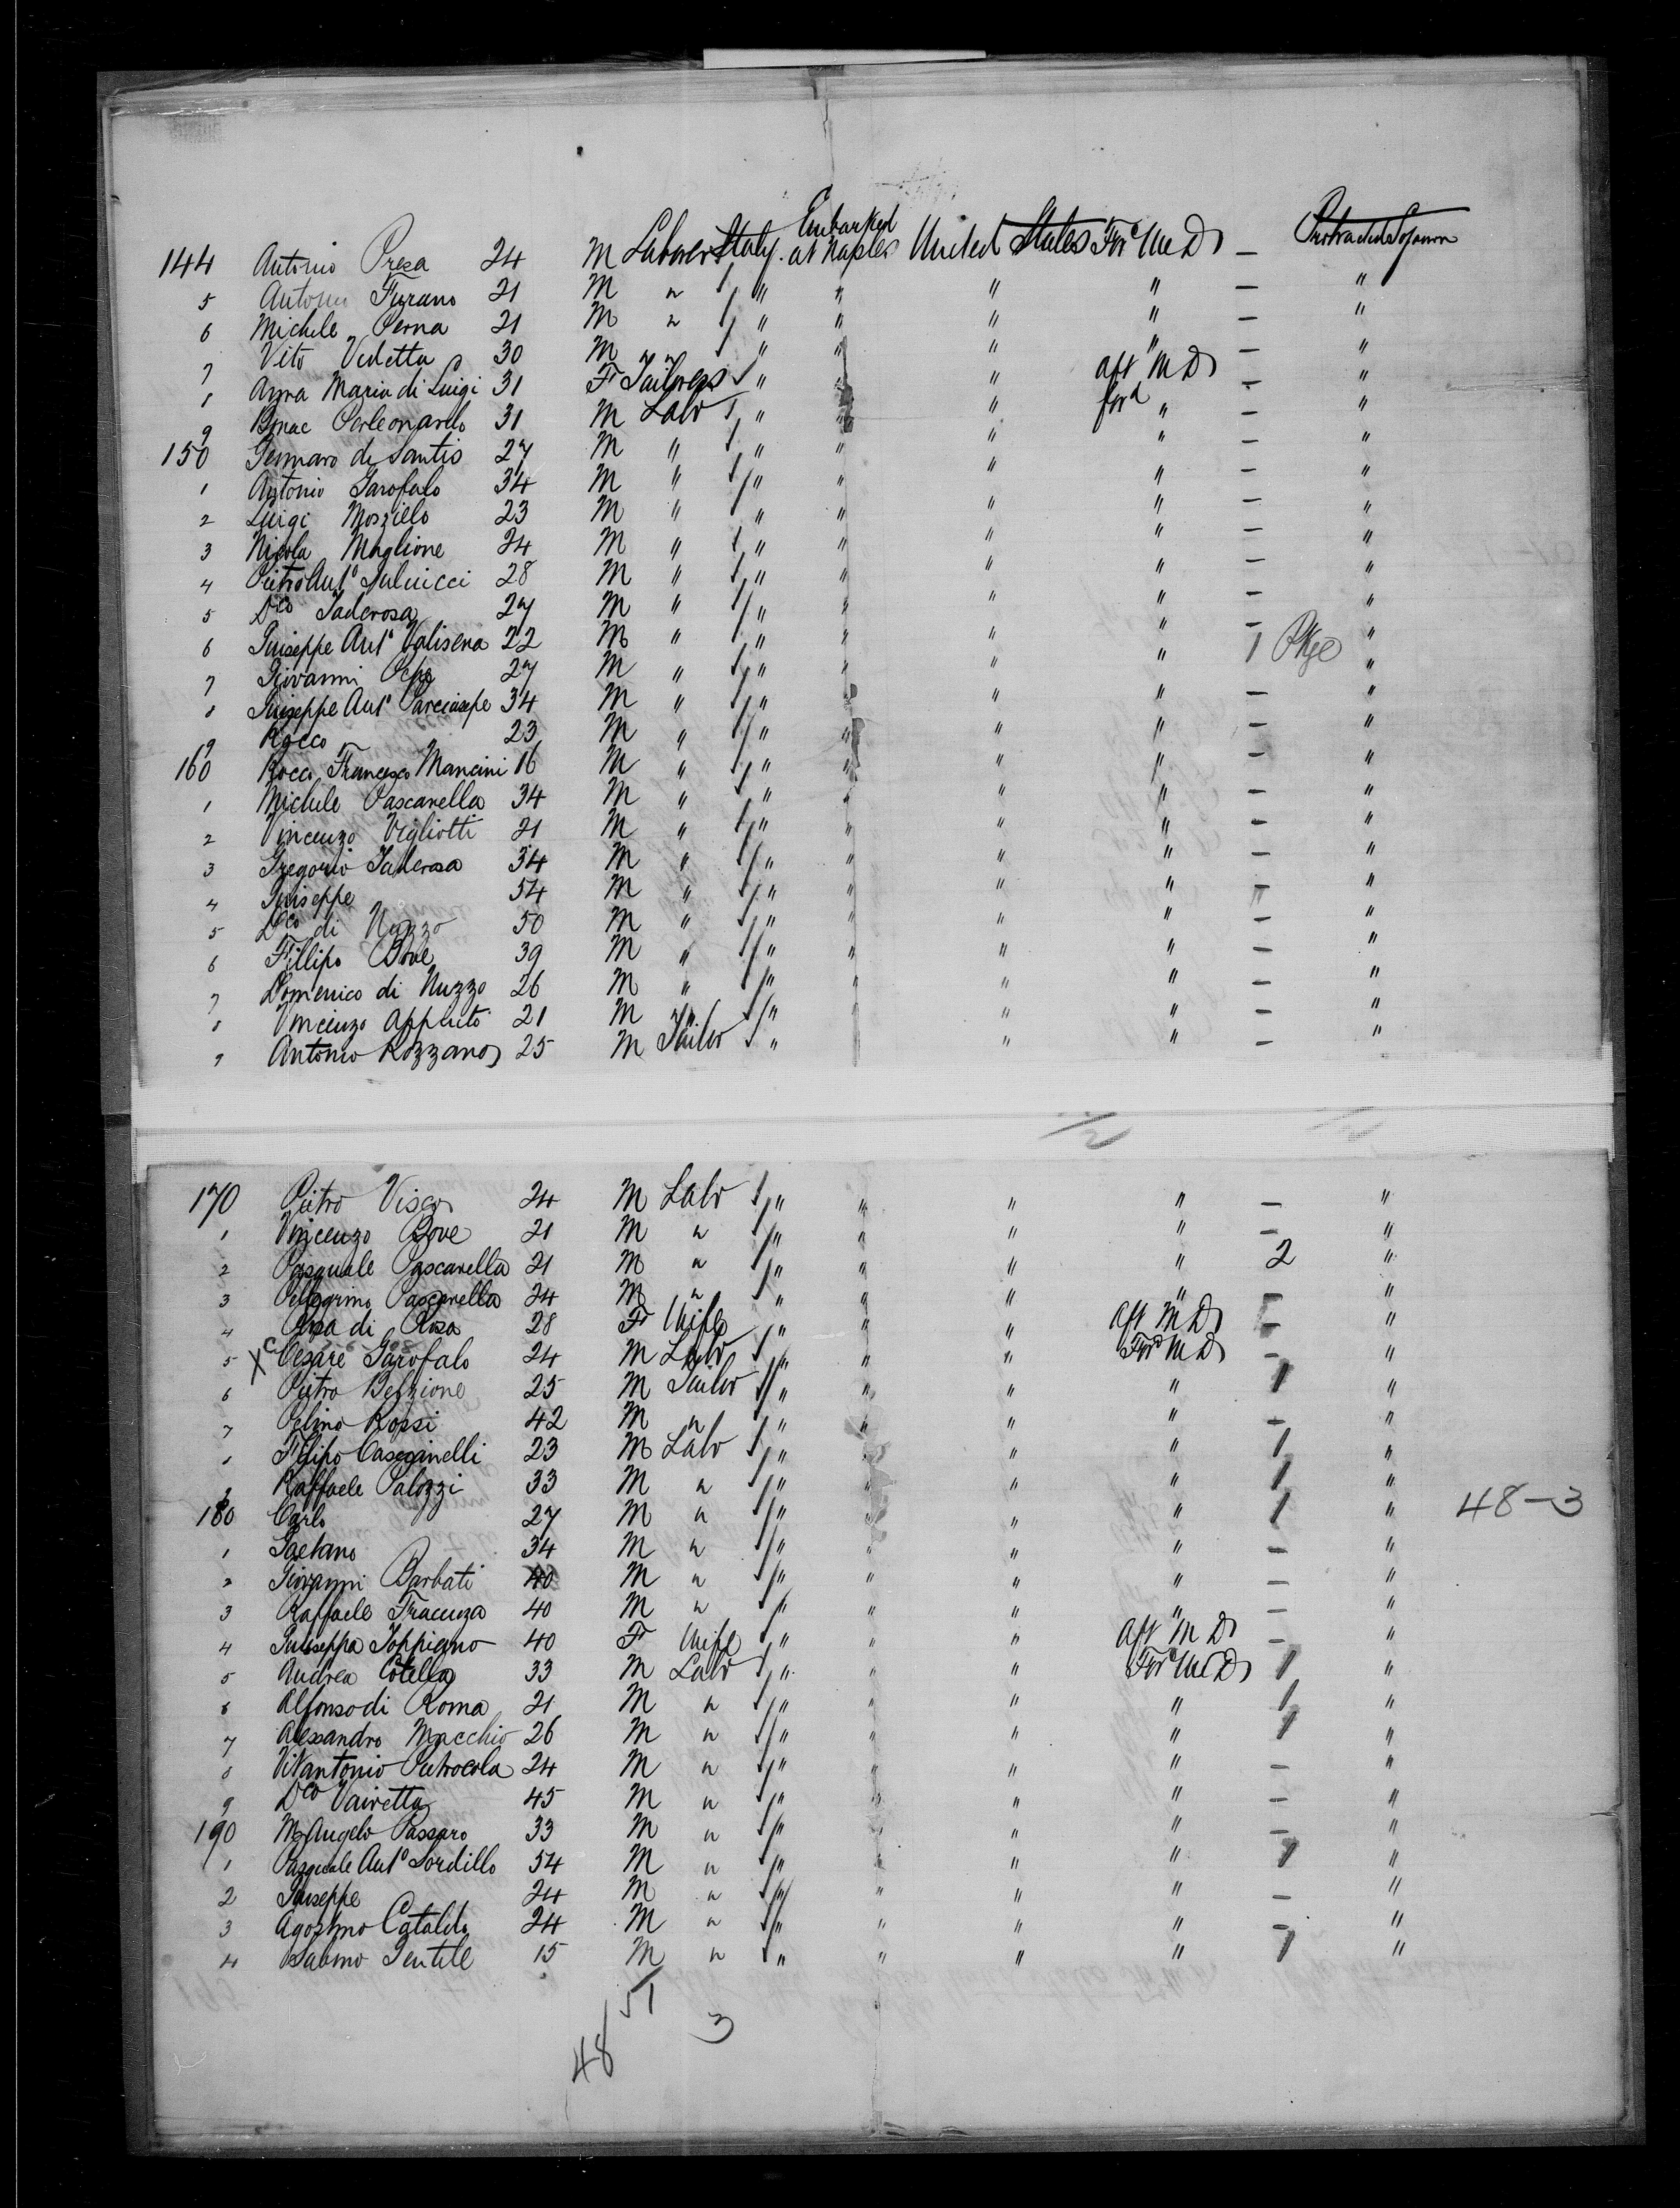 144 Antonio Presa 24 M Laborer Italy. Embarked at Naples United States For'd M D — Protracted Sojourn
5 Antonio Furano 21 M " " " " " — "
6 Michele Perna 21 M " " " " " — "
7 Vito Vedetta 30 M " " " " " — "
8 Anna Maria di Luigi 31 F Tailoress " " " aft M D — "
9 Perleonardo 31 M Labr " " " ford " — "
150 Gennaro de Santis 27 M " " " " " — "
1 Antonio Garofalo 34 M " " " " " — "
2 Luigi Mozzillo 23 M " " " " " — "
3 Nicola Maglione 24 M " " " " " — "
4 Pietro Anto 28 M " " " " " — "
5 Dco Taderosa 27 M " " " " " — "
6 Giuseppe Anto Valisena 22 M " " " " " — "
7 Giovanni 27 M " " " " " 1 Pkge "
8 Giuseppe Anto 34 M " " " " " — "
9 Rocco 23 M " " " " " — "
160 Rocco Francesco Mancini 16 M " " " " " — "
1 Michele Pascarella 34 M " " " " " — "
2 Vincenzo Vigliotti 21 M " " " " " — "
3 Gregorio Taderosa 34 M " " " " " — "
4 Giuseppe 54 M " " " " " — "
5 Dco di Nuzzo 50 M " " " " " — "
6 Fillipo Bove 39 M " " " " " — "
7 Domenico di Nuzzo 26 M " " " " " — "
8 Vincenzo Appiuto 21 M " " " " — "
9 Antonio Rozzano 25 M Tailor " " " — "
170 Pietro Visco 24 M Labr " " " " — "
1 Vincenzo Bove 21 M " " " " " — "
2 Pasquale Pascarella 21 M " " " " " 2 "
3 Pellegrino Pascarella 24 M " " " " " — "
4 Rosa di Rosa 28 F Wife " " " aft M D — "
5 X Cesare Garofalo 24 M Labr " " " For'd M D — "
6 Pietro Belzione 25 M Tailor " " " " 1 "
7 Celino Rossi 42 M " " " " " — "
8 Filipo Casciginelli 23 M Labr " " " " 1 "
9 Raffaele Palozzi 33 M " " " " " 1 "
180 Carlo 27 M " " " " " 1 " 48-3
1 Gaetano 34 M " " " " " — "
2 Giovanni Barbati 40 M " " " " " — "
3 Raffaele Fracuzza 40 M " " " " " — "
4 Giuseppa Ioppigno 40 F Wife " " " aft M D — "
5 Andrea Cotella 33 M Labr " " " For'd M D 1 "
6 Alfonso di Roma 21 M " " " " " 1 "
7 Alessandro Macchio 26 M " " " " " 1 "
8 Vitantonio Petrocola 24 M " " " " " — "
9 Dco Vairetta 45 M " " " " " — "
190 M Angelo Passaro 33 M " " " " " — "
1 Pasquale Anto Sordillo 54 M " " " " " 1 "
2 Giuseppe 24 M " " " " " — "
3 Agostino Cataldo 24 M " " " " " — "
4 Sabino Gentile 15 M " " " " " 1 "
51
48 3